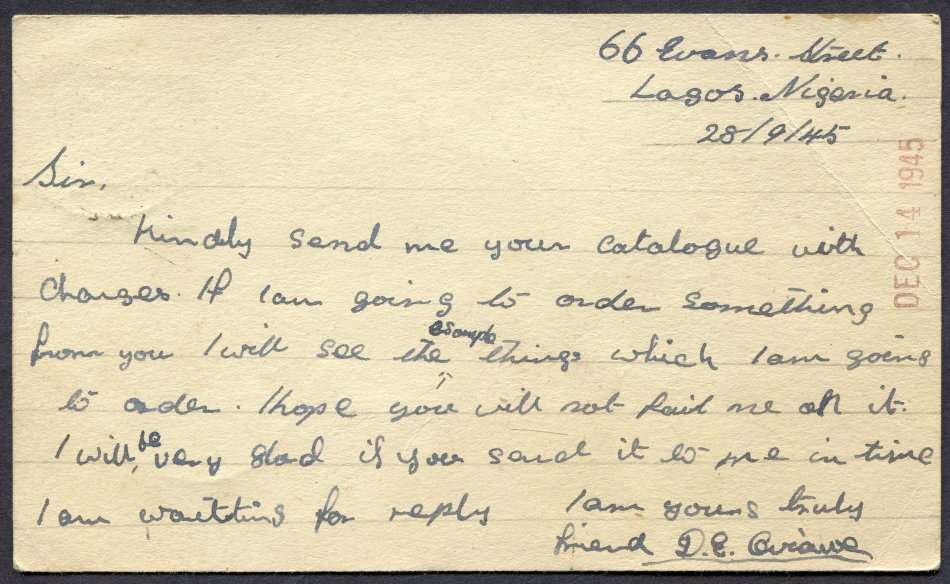 66 Evans. Street.
Lagos. Nigeria.
28/9/45
DEC 14 1945
Sir,
Kindly send me your catalogue with
Charges. If I am going to order something
from you I will see the sample things which I am going
to order. I hope you will not fail me on it.
I will be very glad if you send it to me in time
I am waitting for reply I am yours truly
friend D.E.